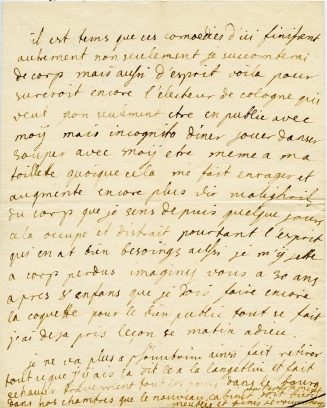 il est tems que ces comoedies d'ici finissent
autrement non seulement je succomberai
de corps mais aussi d'esprit voila pour
surcroit encore l'electeur de cologne qui
veut non seulment etre en public avec
moÿ mais incognito diner jouer danser
souper avec moÿ etre meme a ma
toilette quoique cela me fait enrager et
augmente encore plus
du corps que je sens depuis quelque jours
cela occupe et distrait pourtant l'esprit
qui en at bien besoing aussi je m'y jette
a corp perdus imaginés vous a 30 ans
apres 3 enfans que je dois faire encore
la coquette pour le bien public tout se fait
j'ai deja pris leçon se matin adieu
je ne va plus a ainsi fait retirer
tout ce que j'avais la dit le a langetlin et fait
echaufer bravement tout ces jours dans le bourg
dans nos chambres que le nouveau cabinet soit bien
meublés